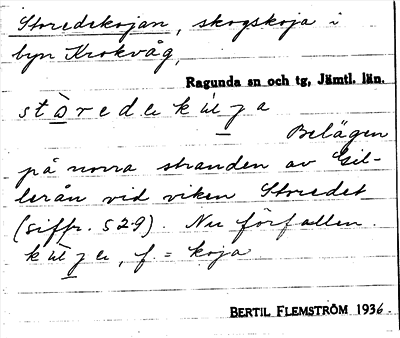 Storedskojan, skogskoja i
byn Krokvåg,
Ragunda sn och tg, Jämtl. län.
Belägen
på norra stranden av Gil-
lerån vid viken Storedet
(siffr. 529). Nu förfallen.
f. = koja
BERTIL FLEMSTRÖM 1936.